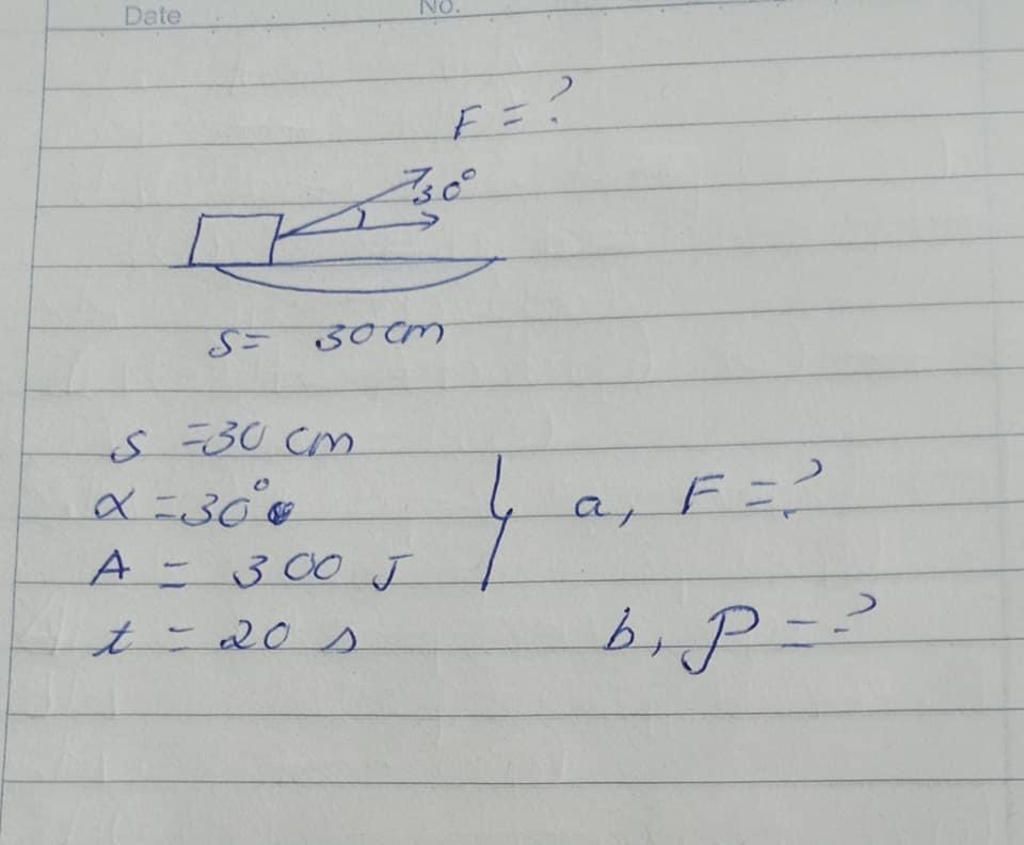 Date No.
F = ?
30°
s= 30cm
s =30 cm
α =30°
A = 300 J
a, F =?
t = 20 s
b, P =?